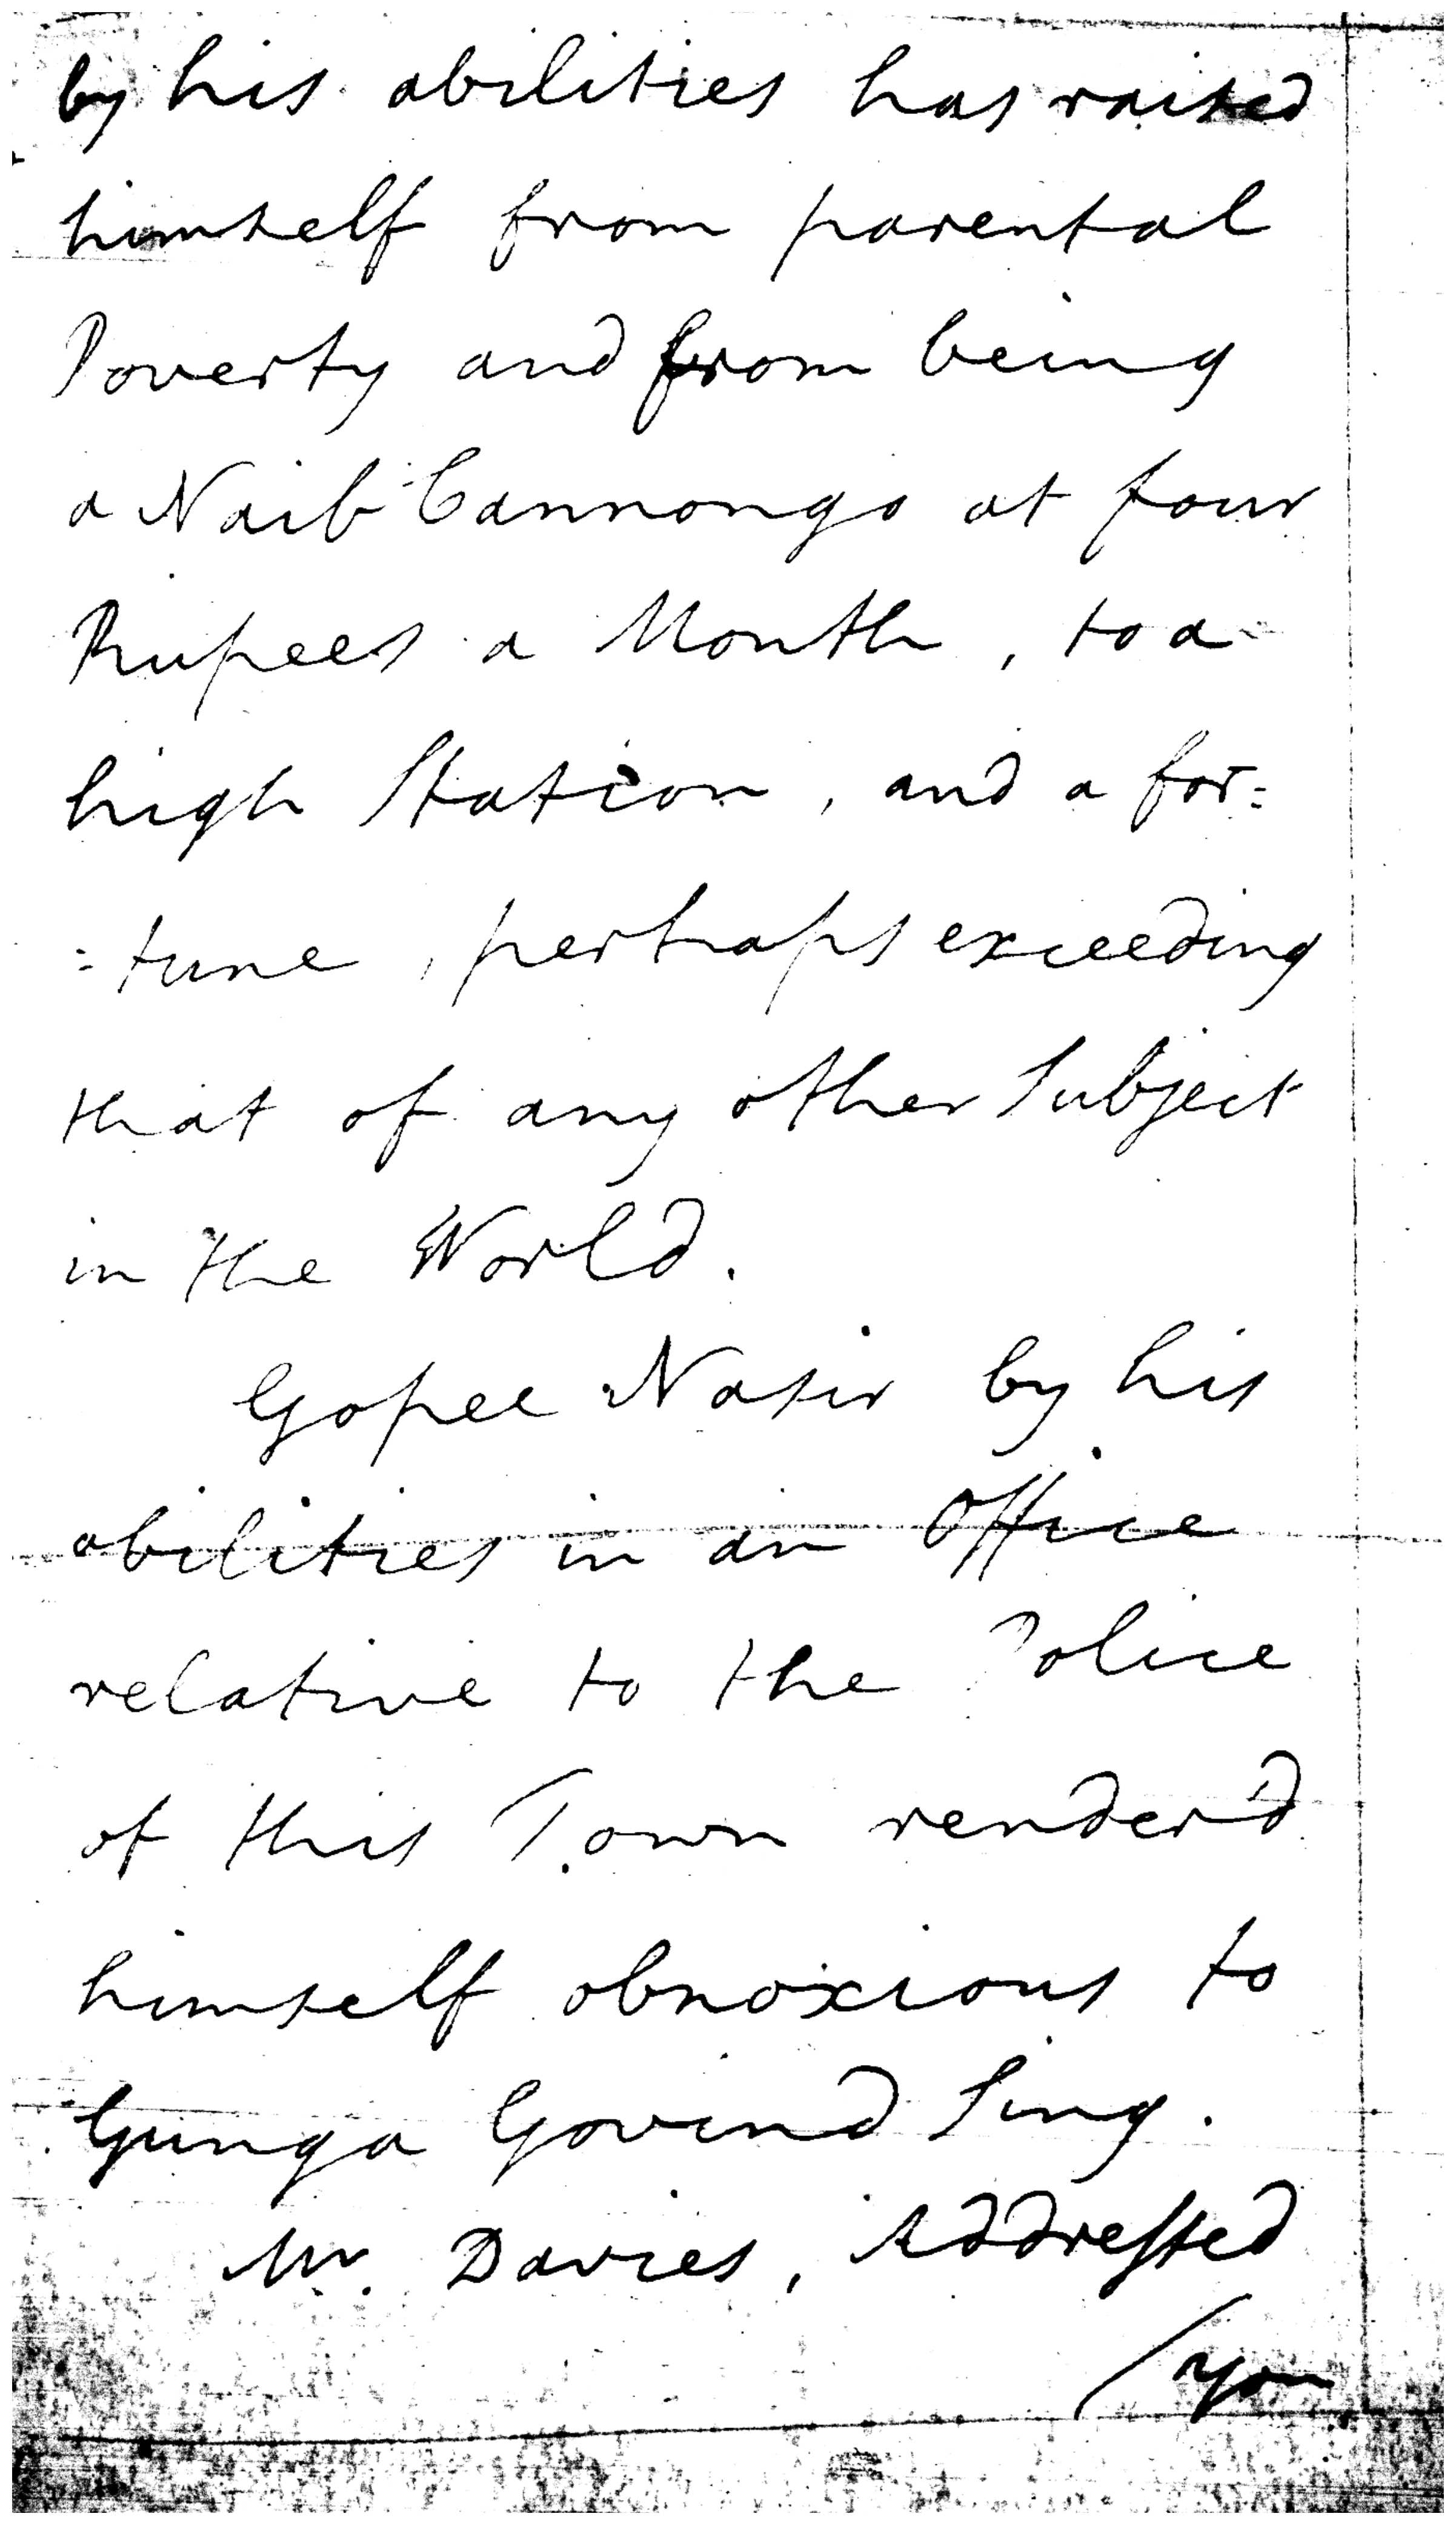 by his abilities has raised
himself from parental
Poverty and from being
a Naib Cannongo at four
Rupees a Month, to a
high Station, and a for=
=tune, perhaps exceeding
that of any other Subject
in the World.
Gopee Nasir by his
abilities in an Office
relative to the Police
of this Town render'd
himself obnoxious to
Gunga Govind Sing.
Mr. Davies, Addressed
/you